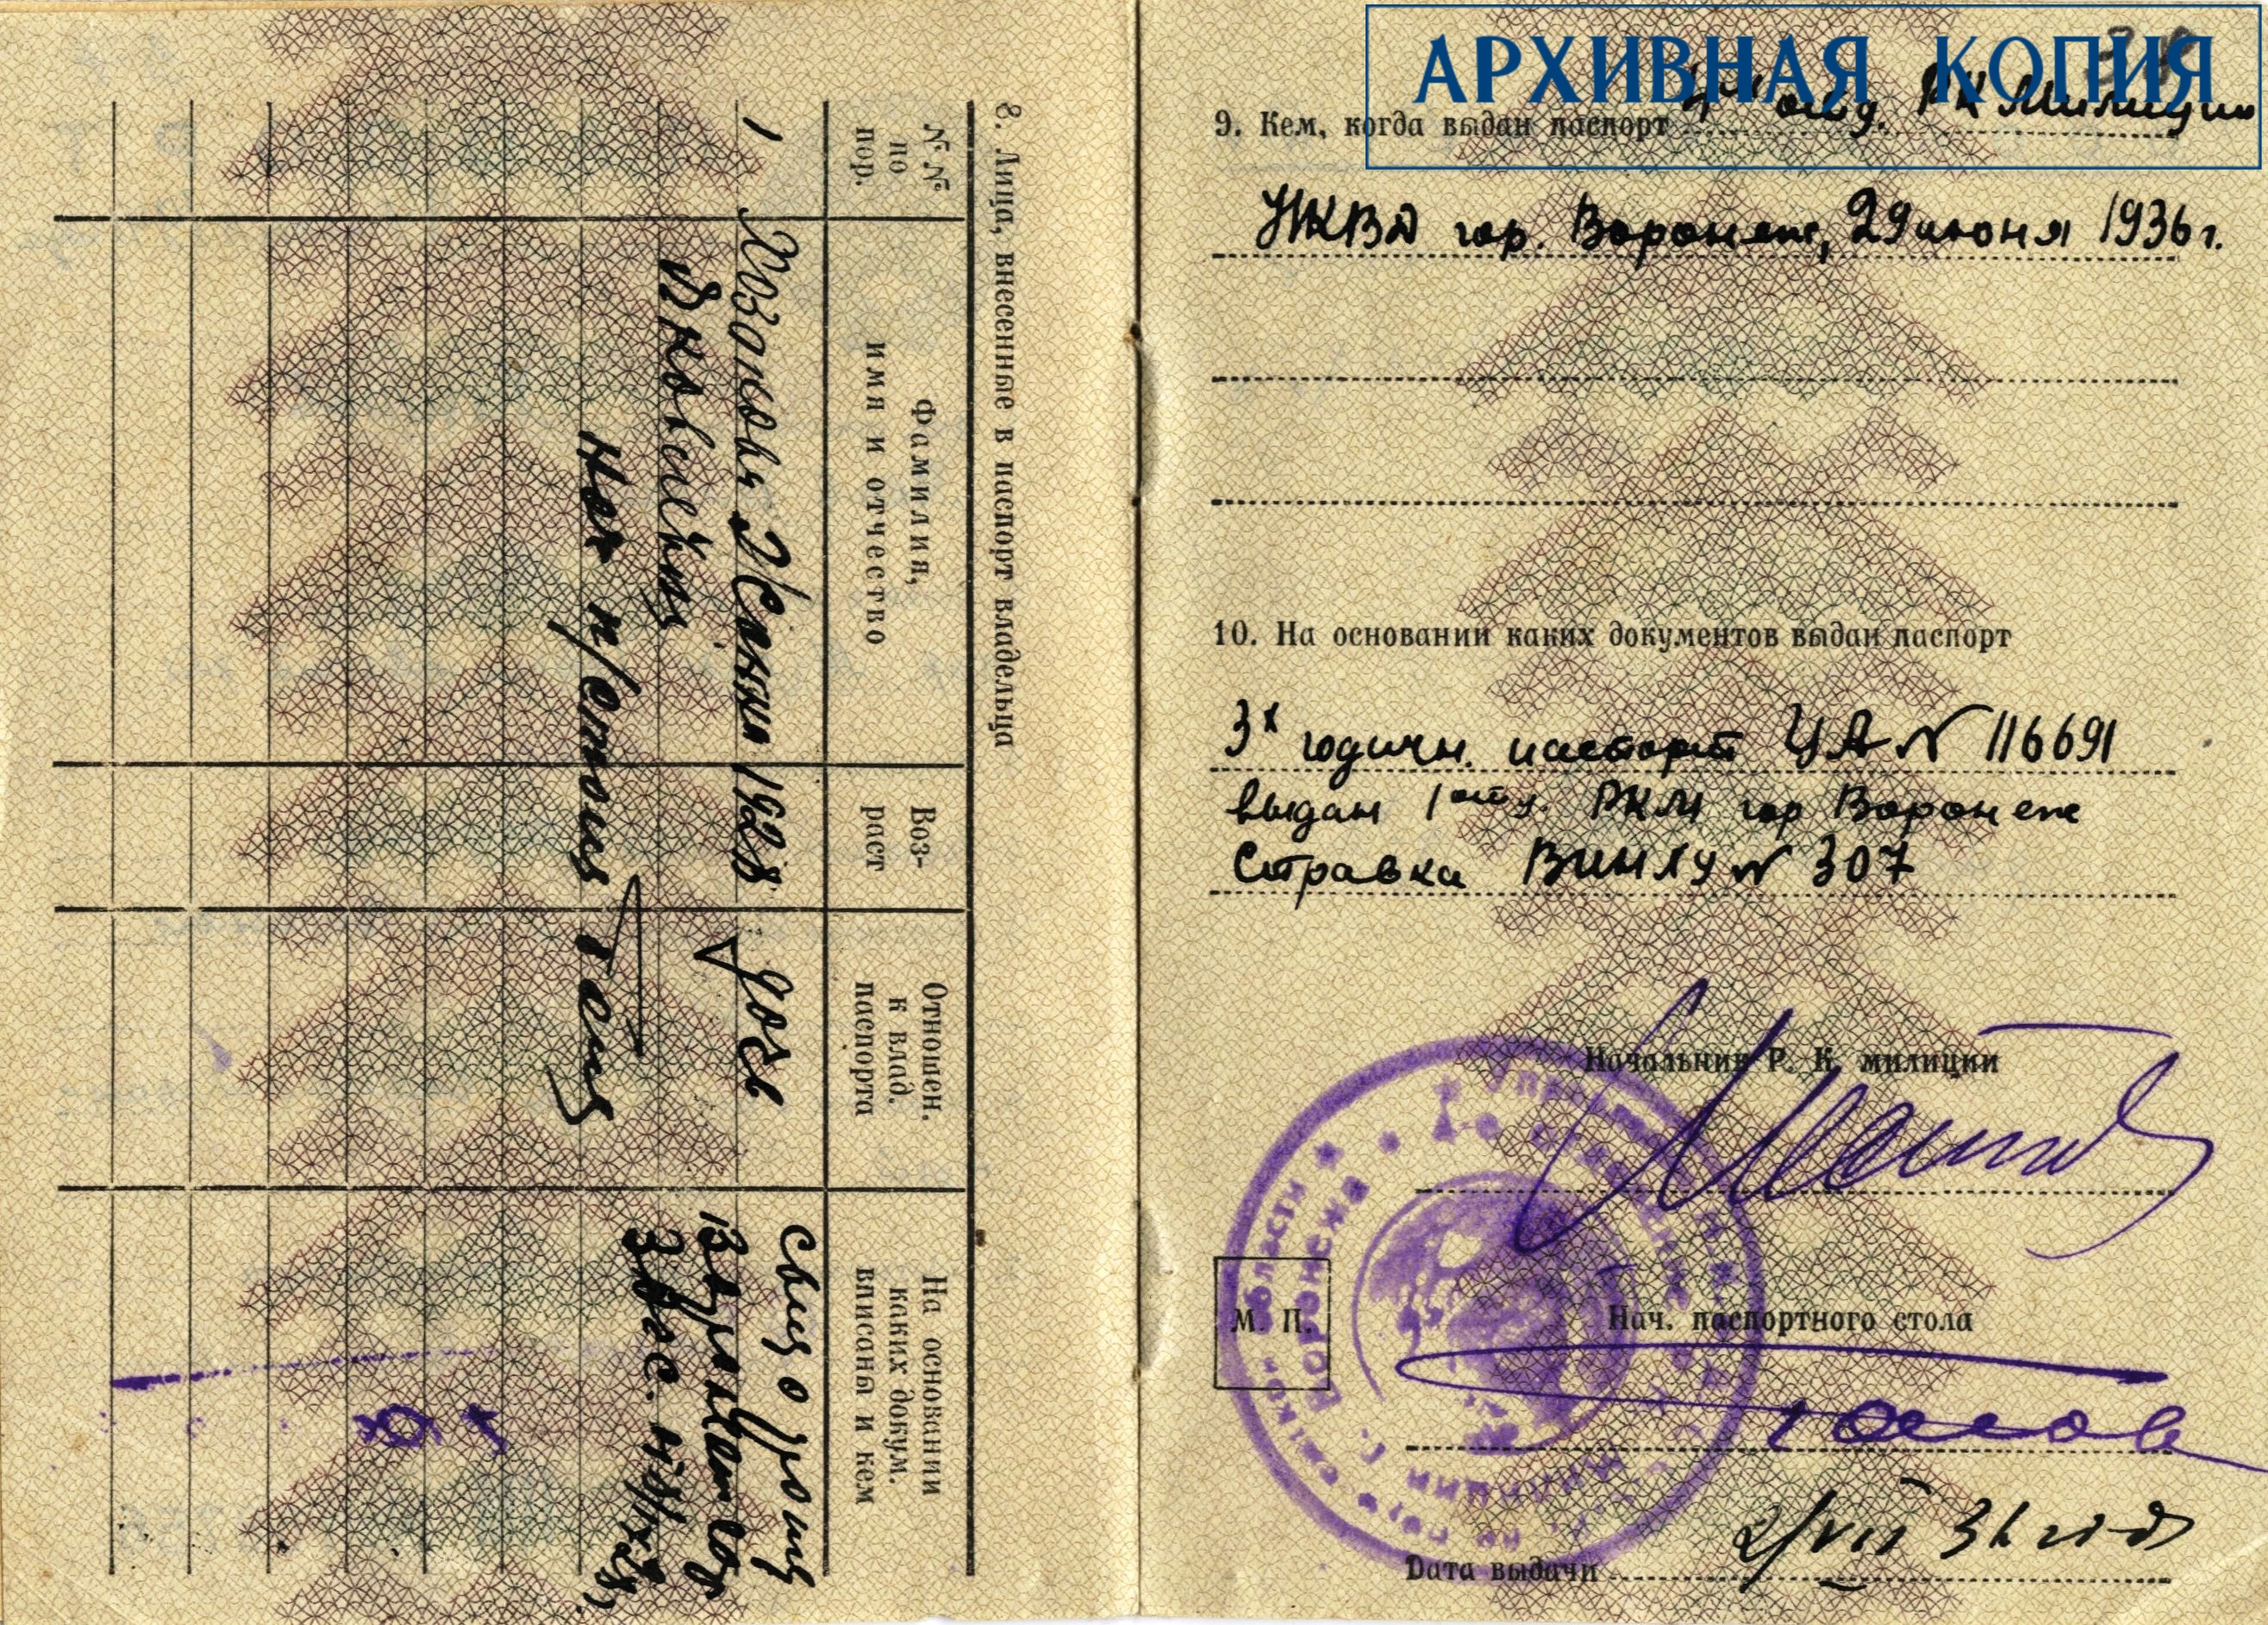 АРХИВНАЯ КОПИЯ
8. Лица, внесенные в паспорт владельца
№ № по пор.
Фамилия, имя и отчество
Воз- раст
Отношен. к влад. паспорта
На основании каких докум. вписана и кем
1 Жанна 1928 дочь
свид о
Нач п/стола
9. Кем, когда выдан паспорт 4ым отд. РК Милиции
НКВД гор. Воронеж, 29 июня 1936 г.
10. На основании каких документов выдан паспорт
3х годичн. паспорт ЦА № 116691
выдан 1 отд. РКМ гор Воронеж
Справка № 307
Начальник Р. К. милиции
М. П.
Нач. паспортного стола
Дата выдачи 2/VII 36